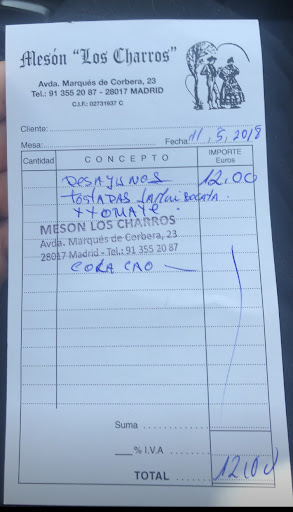 Mesón "Los Charros"
Avda. Marqués de Corbera, 23
Tel.: 91 355 20 87 - 28017 MADRID
C.I.F.: 02731937 C
Cliente:
Mesa: Fecha: 11, 5, 2018
Cantidad CONCEPTO IMPORTE Euros
DESAYUNOS 12,00
TOSTADAS
MESON LOS CHARROS
Avda. Marqués de Corbera, 23
28017 Madrid - Tel.: 91 355 20 87
COLA CAO
Suma
% I.V.A
TOTAL 12,00